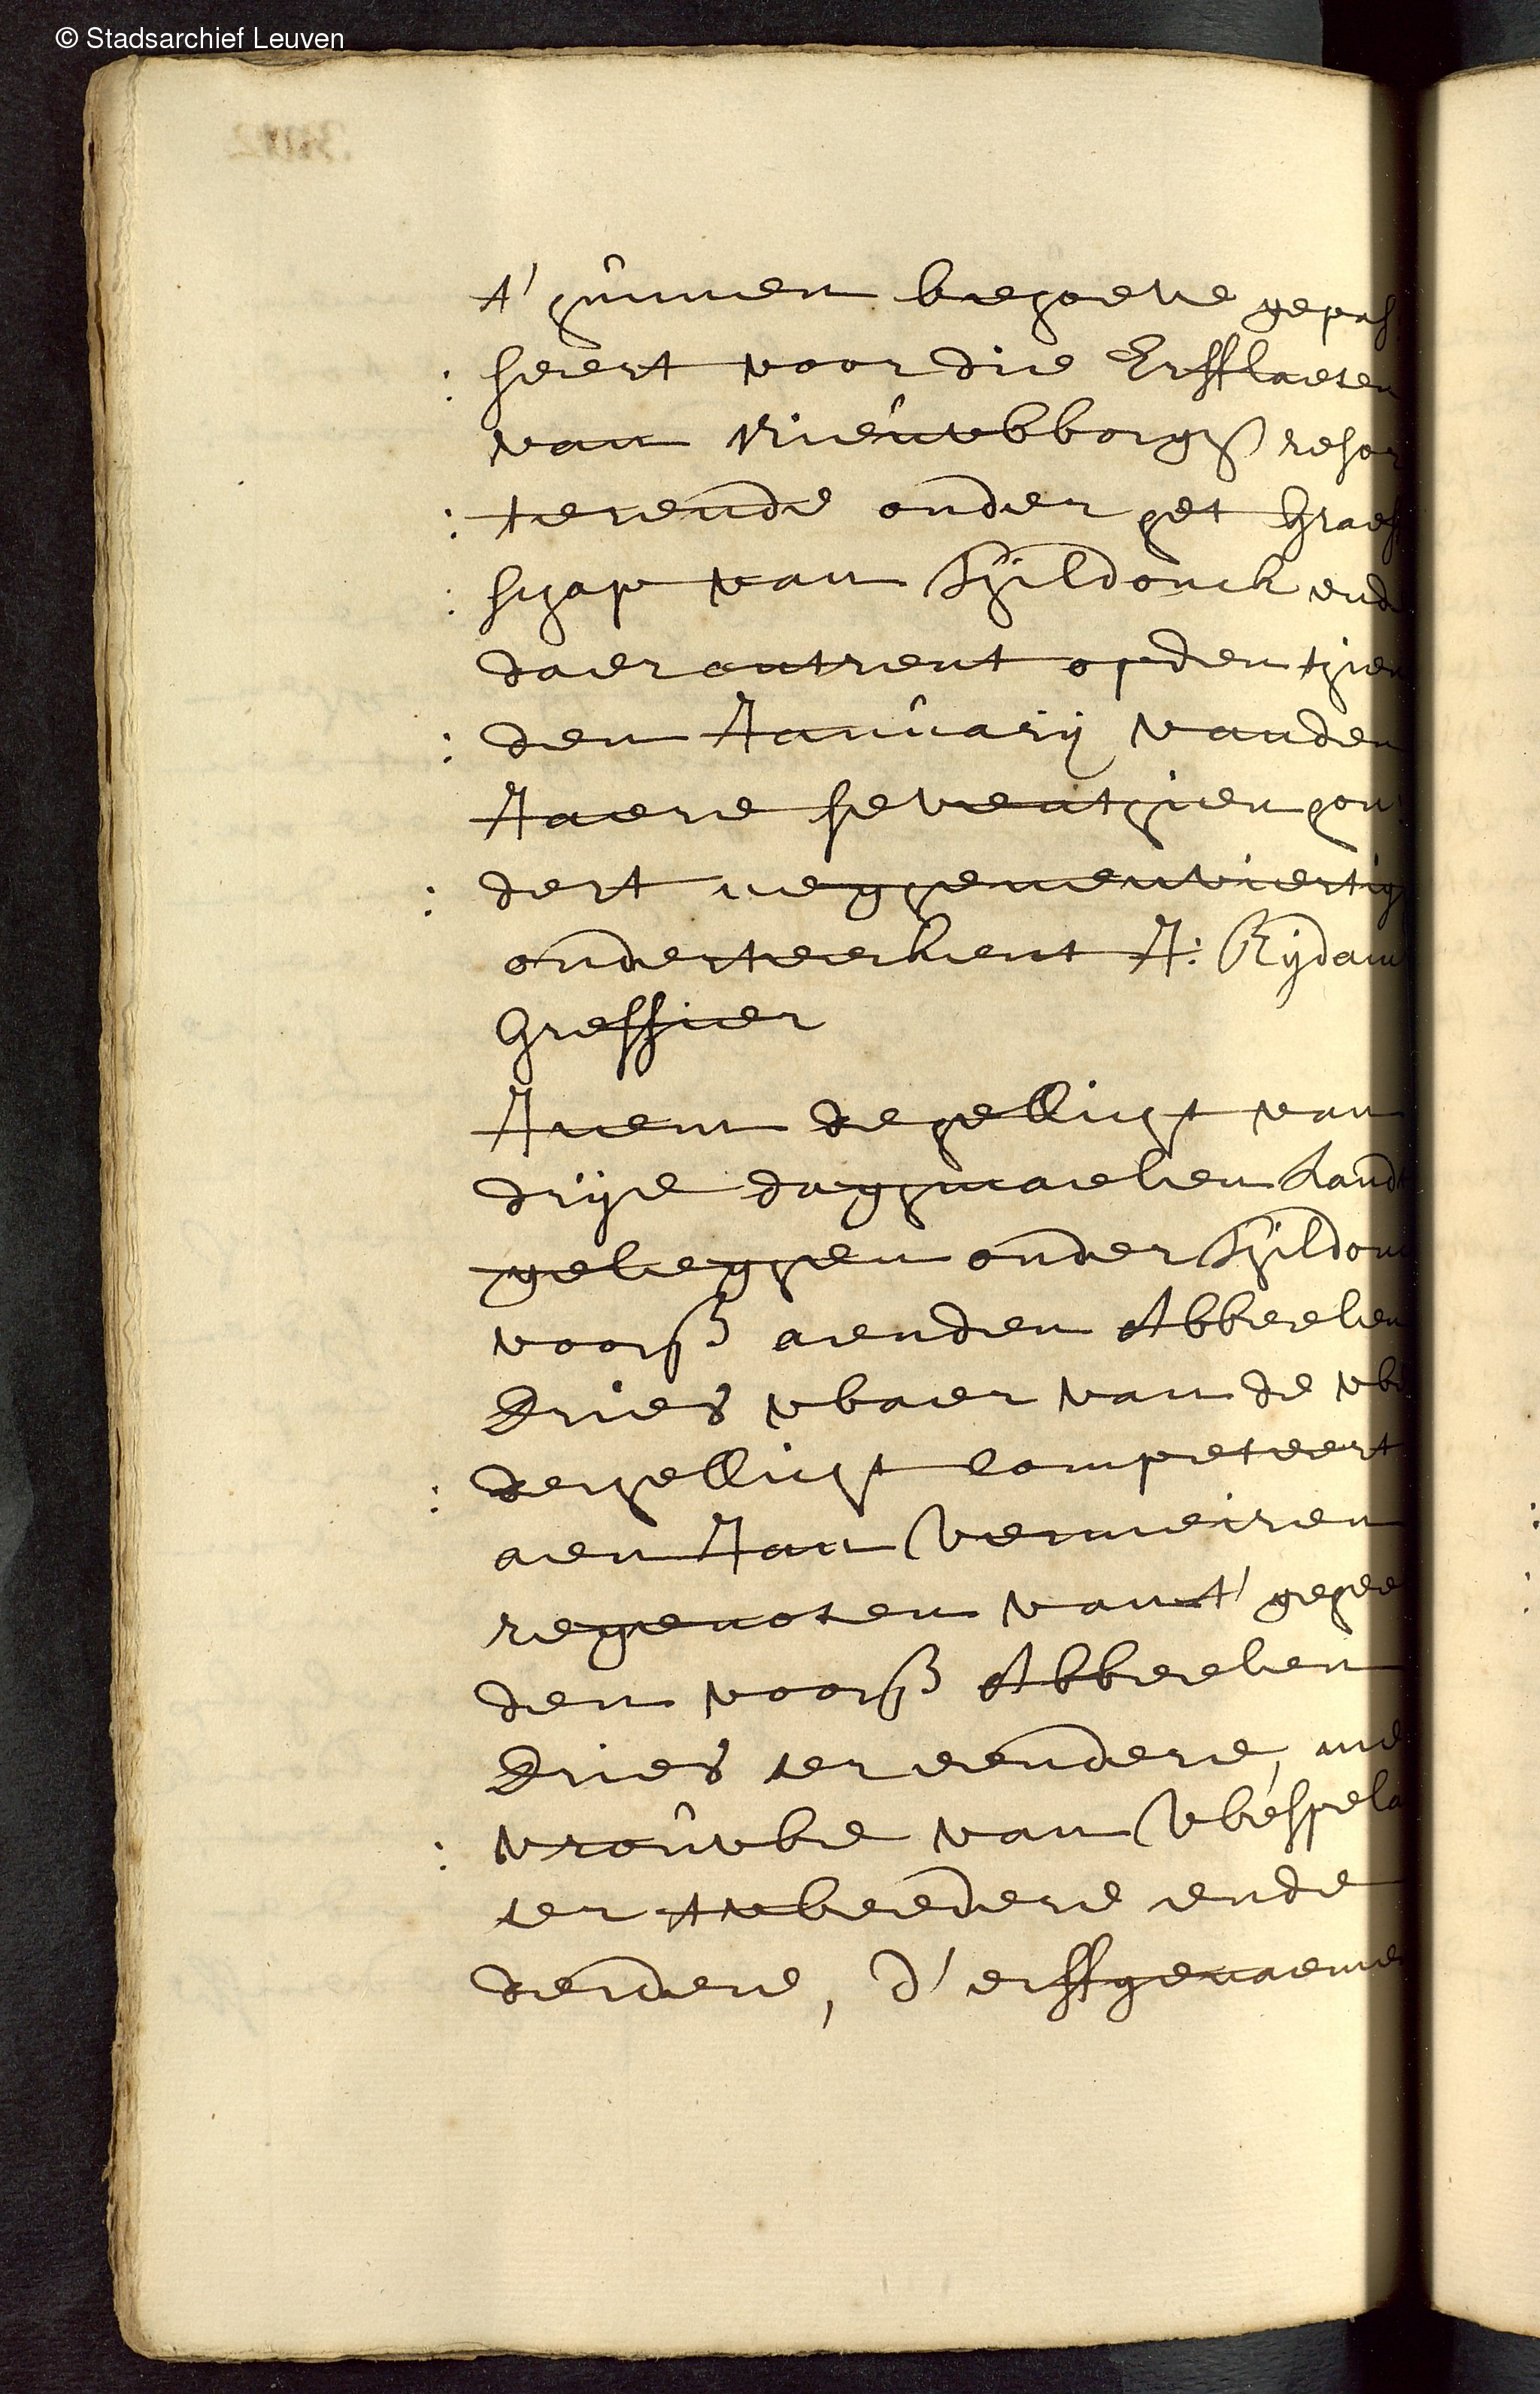 © Stadsarchief Leuven
t' hûnnen behoeve gepas
: seert voor die Erfflaeten
van Nieûwborghs resor
: terende onder het Graef
: schap van Thildonck ende
daerontrent opden thien
: den Janûarij vanden
Jaere seventhien hon
: dert neghenenviertigh
onderteekent J: Rijdam
Greffier
Item de hellicht van
drije daghmaelen Landt
geleghen onder Thildon
voors aenden Abbeelen
Dries waer van de we
: derhellicht competeert
aen Jan Vermeiren
regenoten vant' geheel
den voors Abbeelen
Dries ter eendere, me
: vroûwe van Wespela
ter tweedere ende
derdere, d' erffgenaeme